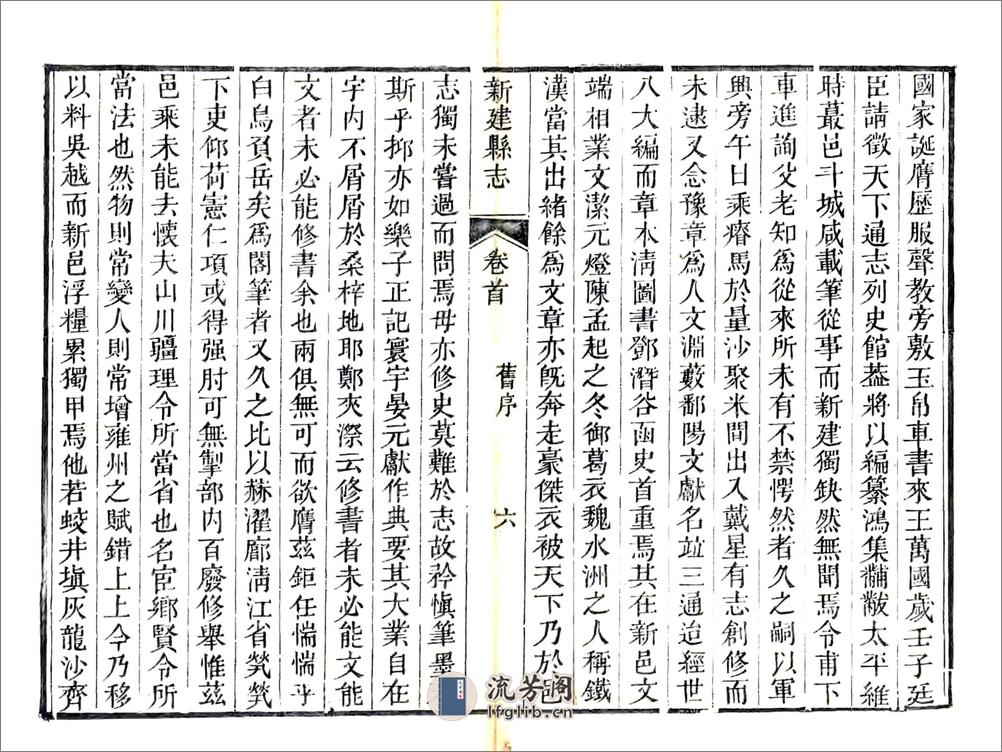 國家誕膺歷服聲教旁敷玉帛車書來王萬國歲壬子廷
臣請徵天下通志列史館葢將以編纂鴻集黼黻太平維
時蕞邑斗城咸載筆從事而新建獨缺然無聞焉令甫下
車進詢父老知爲從來所未有不禁愕然者久之嗣以軍
興旁午日乘瘠馬於量沙聚米間出入戴星有志創修而
未逮又念豫章爲人文淵藪鄱陽文獻名竝三通迨經世
八大編而章本淸圖書鄧潛谷函史首重焉其在新邑文
端相業文潔元燈陳孟起之冬御葛衣魏水洲之人稱鐵
漢當其出緒餘爲文章亦旣奔走豪傑衣被天下乃於邑
新建縣志 卷首 舊序 六
志獨未嘗過而問焉毋亦修史莫難於志故矜愼筆墨
斯乎抑亦如樂子正記寰宇晏元獻作典要其大業自在
宇内不屑屑於桑梓地耶鄭夾漈云修書者未必能文能
文者未必能修書余也兩俱無可而欲膺茲鉅任惴惴乎
白鳥負岳矣爲閣筆者又久之比以赫濯廊淸江省煢煢
下吏仰荷憲仁項或得强肘可無掣部内百廢修舉惟茲
邑乘未能去懷夫山川疆理令所當省也名宦鄉賢令所
當法也然物則常變人則常增雍州之賦錯上上今乃移
以料吳越而新邑浮糧累獨甲焉他若蛟井塡灰龍沙齊
流芳閣
lfglib.cn